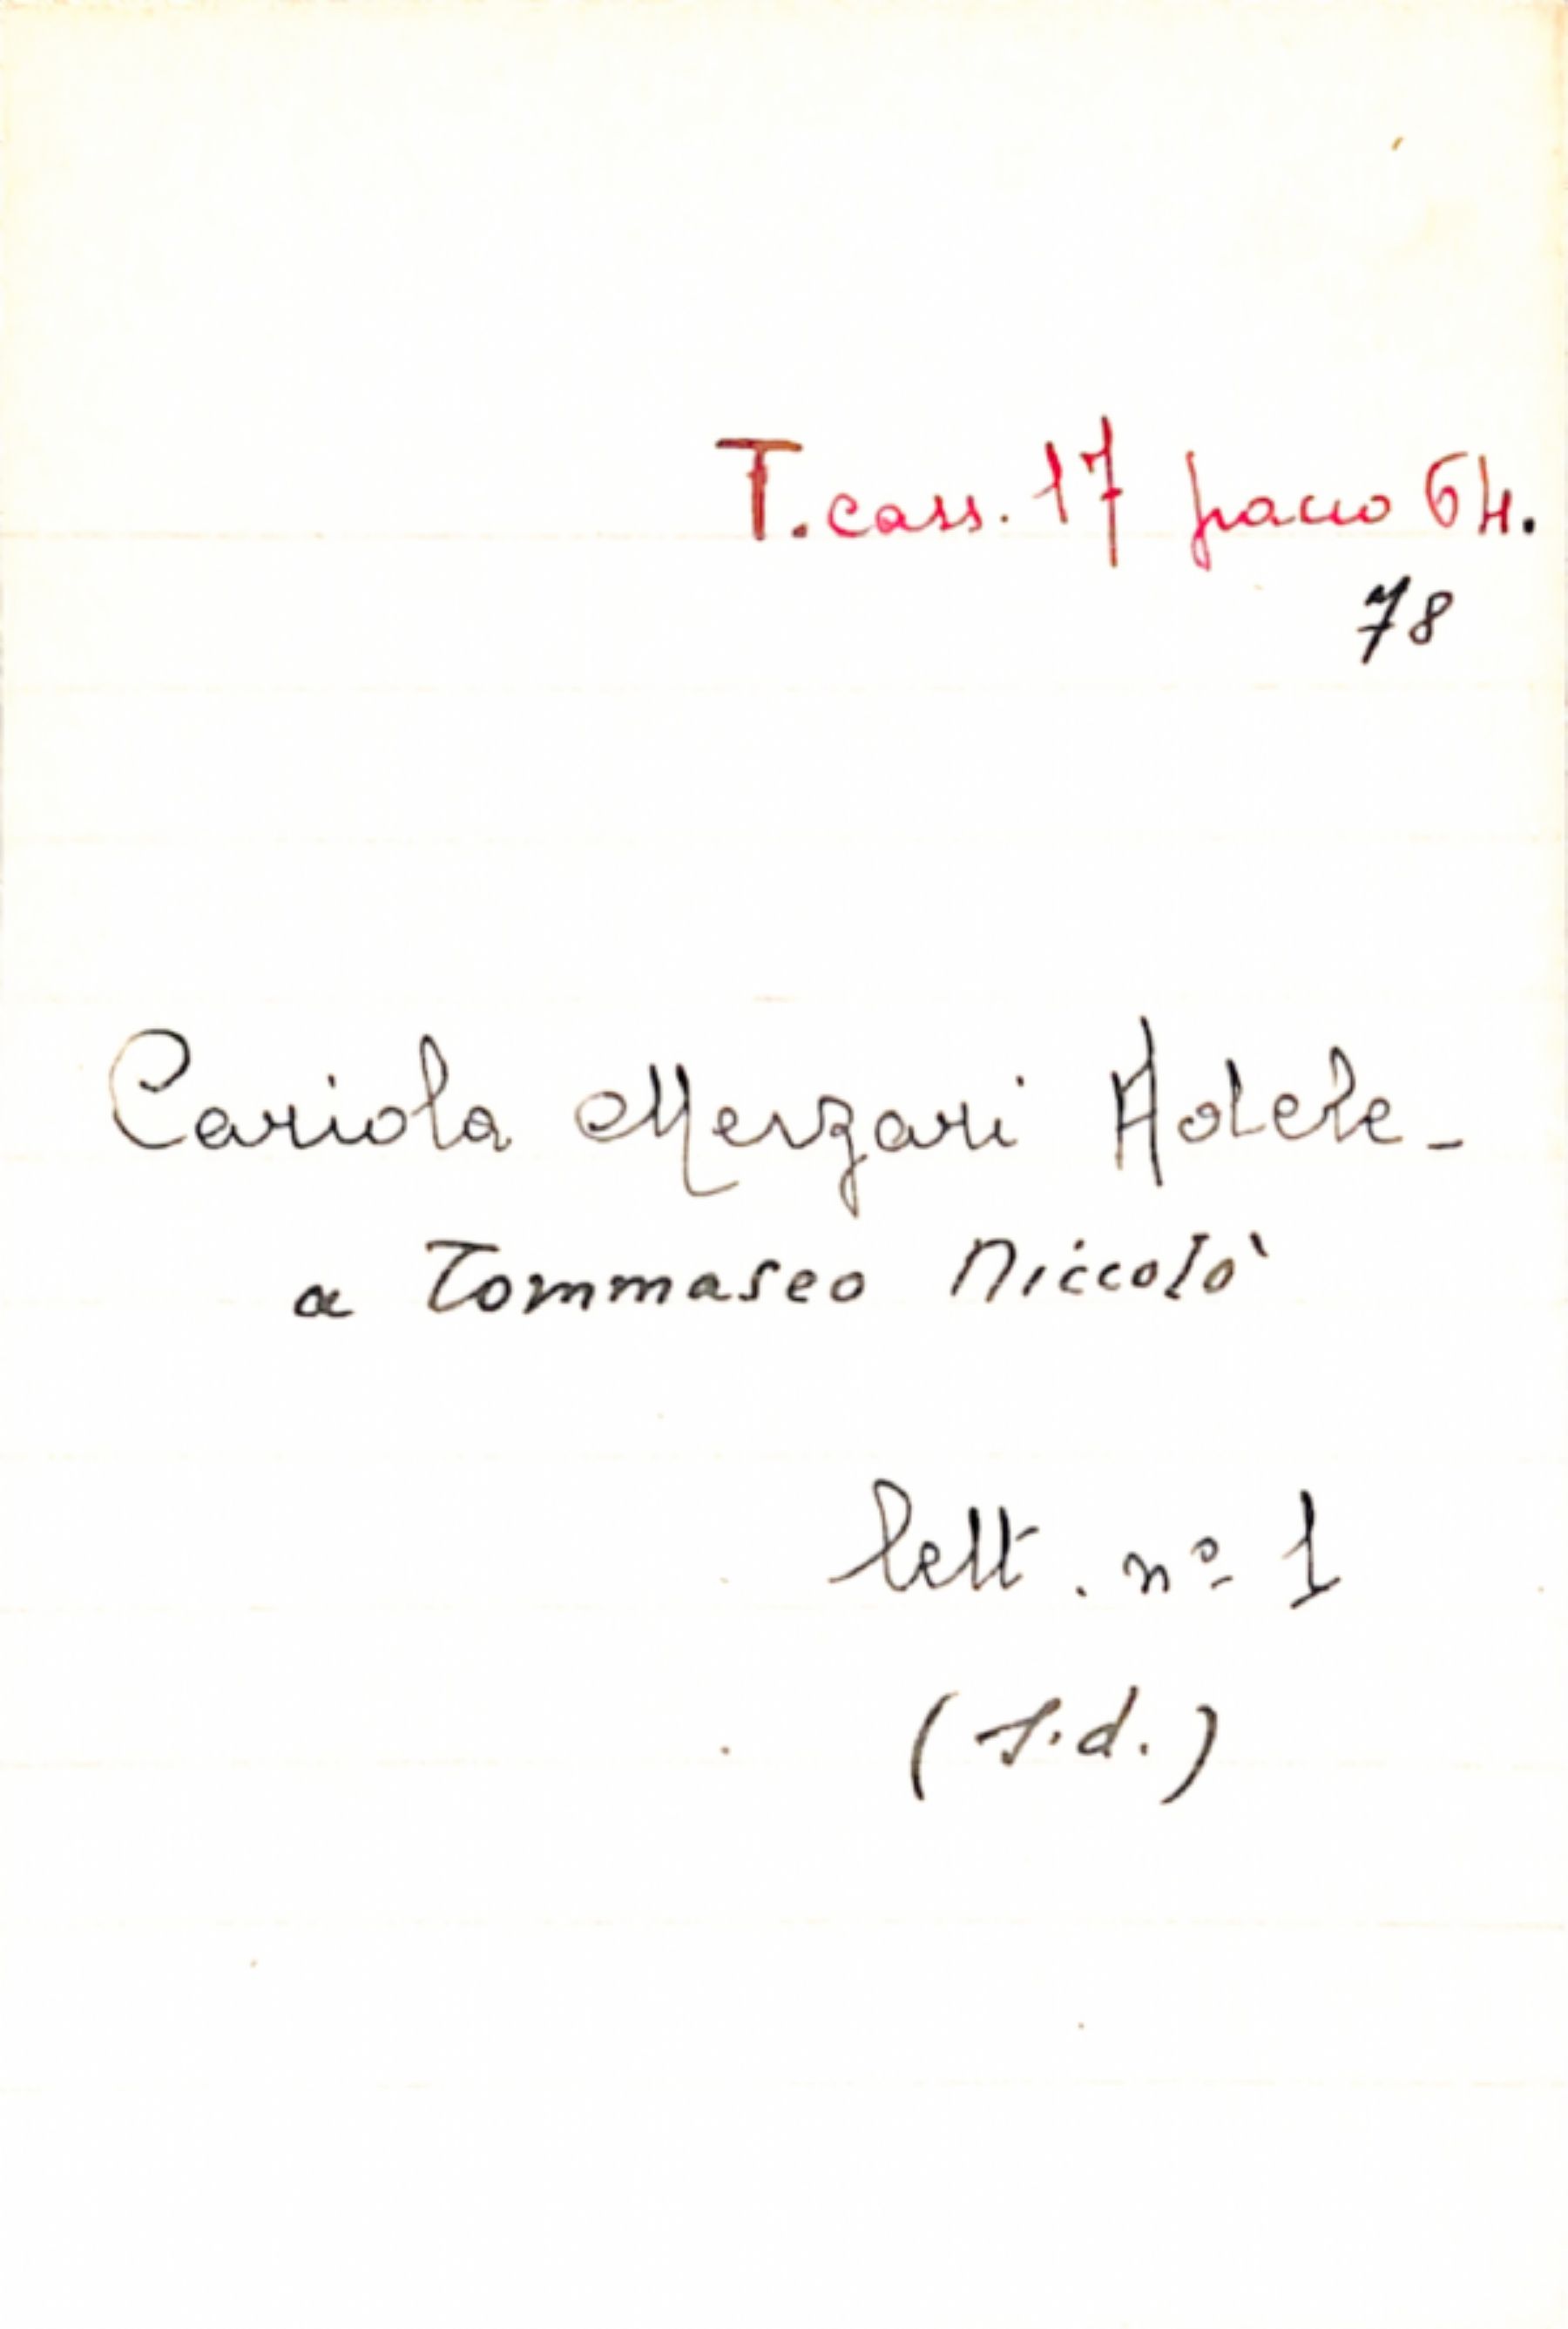 T. cass. 17 pacco 64.
78
Cariola Merzari Adele -
a Tommaseo Niccolò
lett. nº 1
(s.d.)